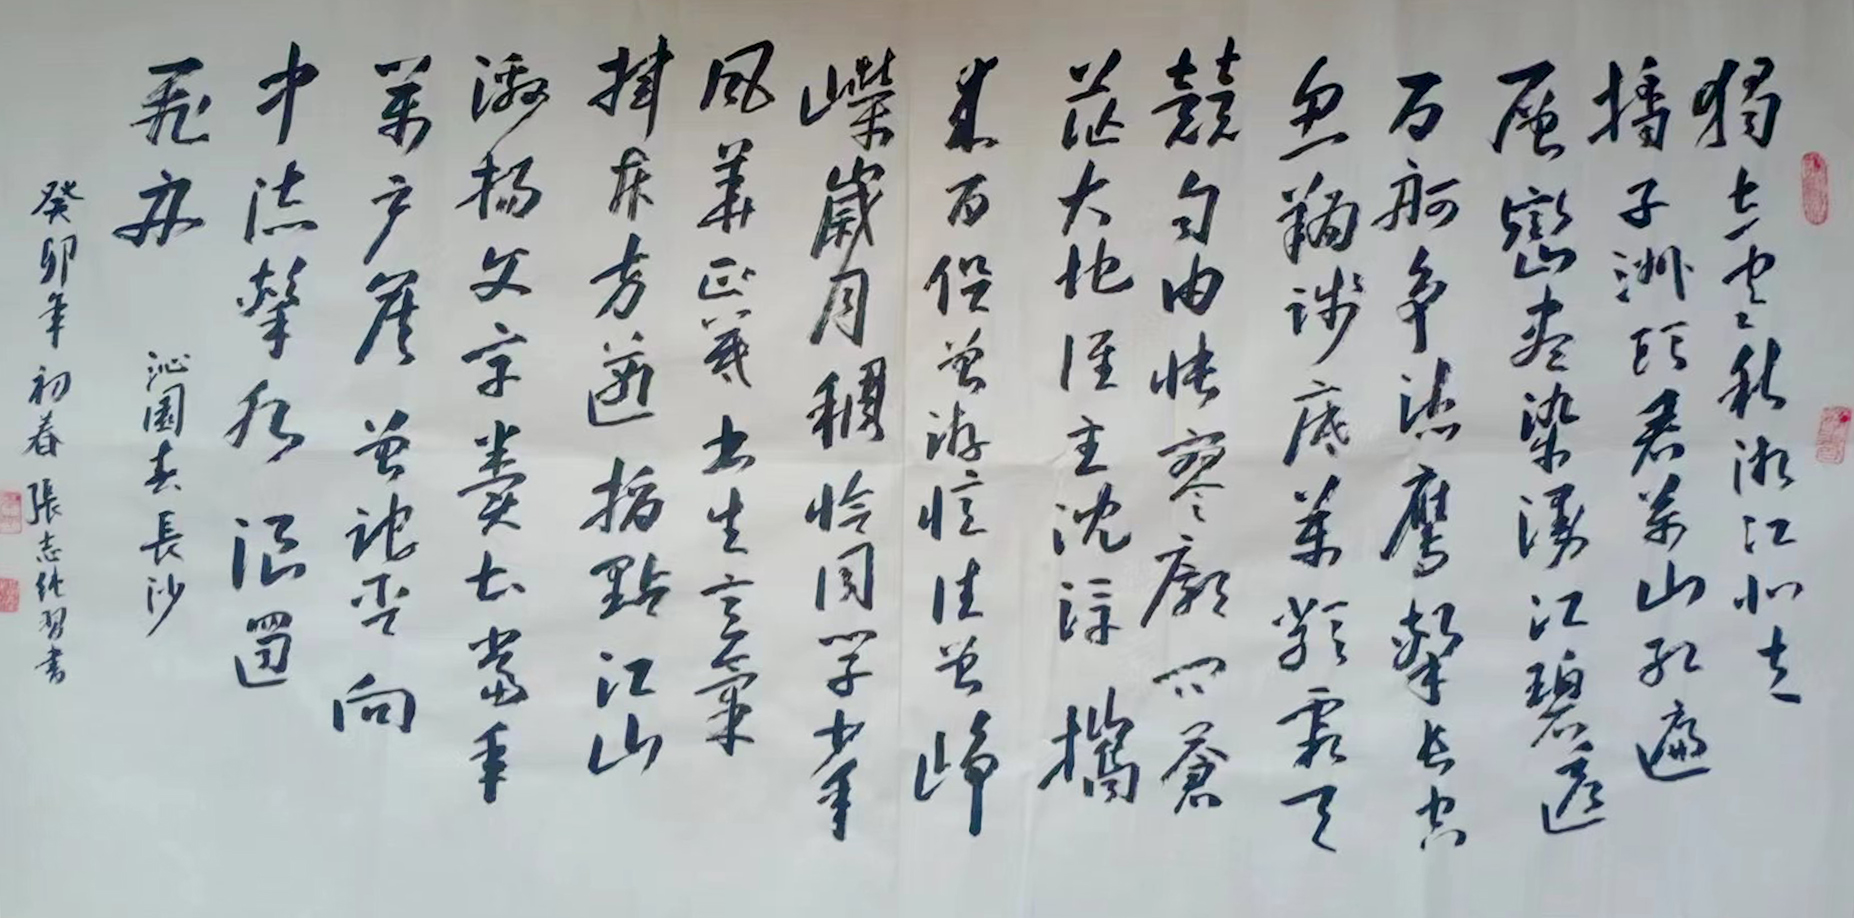 獨立寒秋湘江北去
橘子洲頭看萬山紅遍
層巒盡染漫江碧透
百舸争流鷹擊長空
魚翔淺底萬類霜天
競自由悵寥廓問蒼
茫大地誰主沈浮攜
来百侣曾游憶往昔崢
嶸歲月稠恰同學少年
風華正茂書生意氣
揮斥方遒指點江山
激揚文字糞土當年
萬户侯曾記否向
中流擊水浪遏
飛舟
沁園春長沙
癸卯年初春張志習書